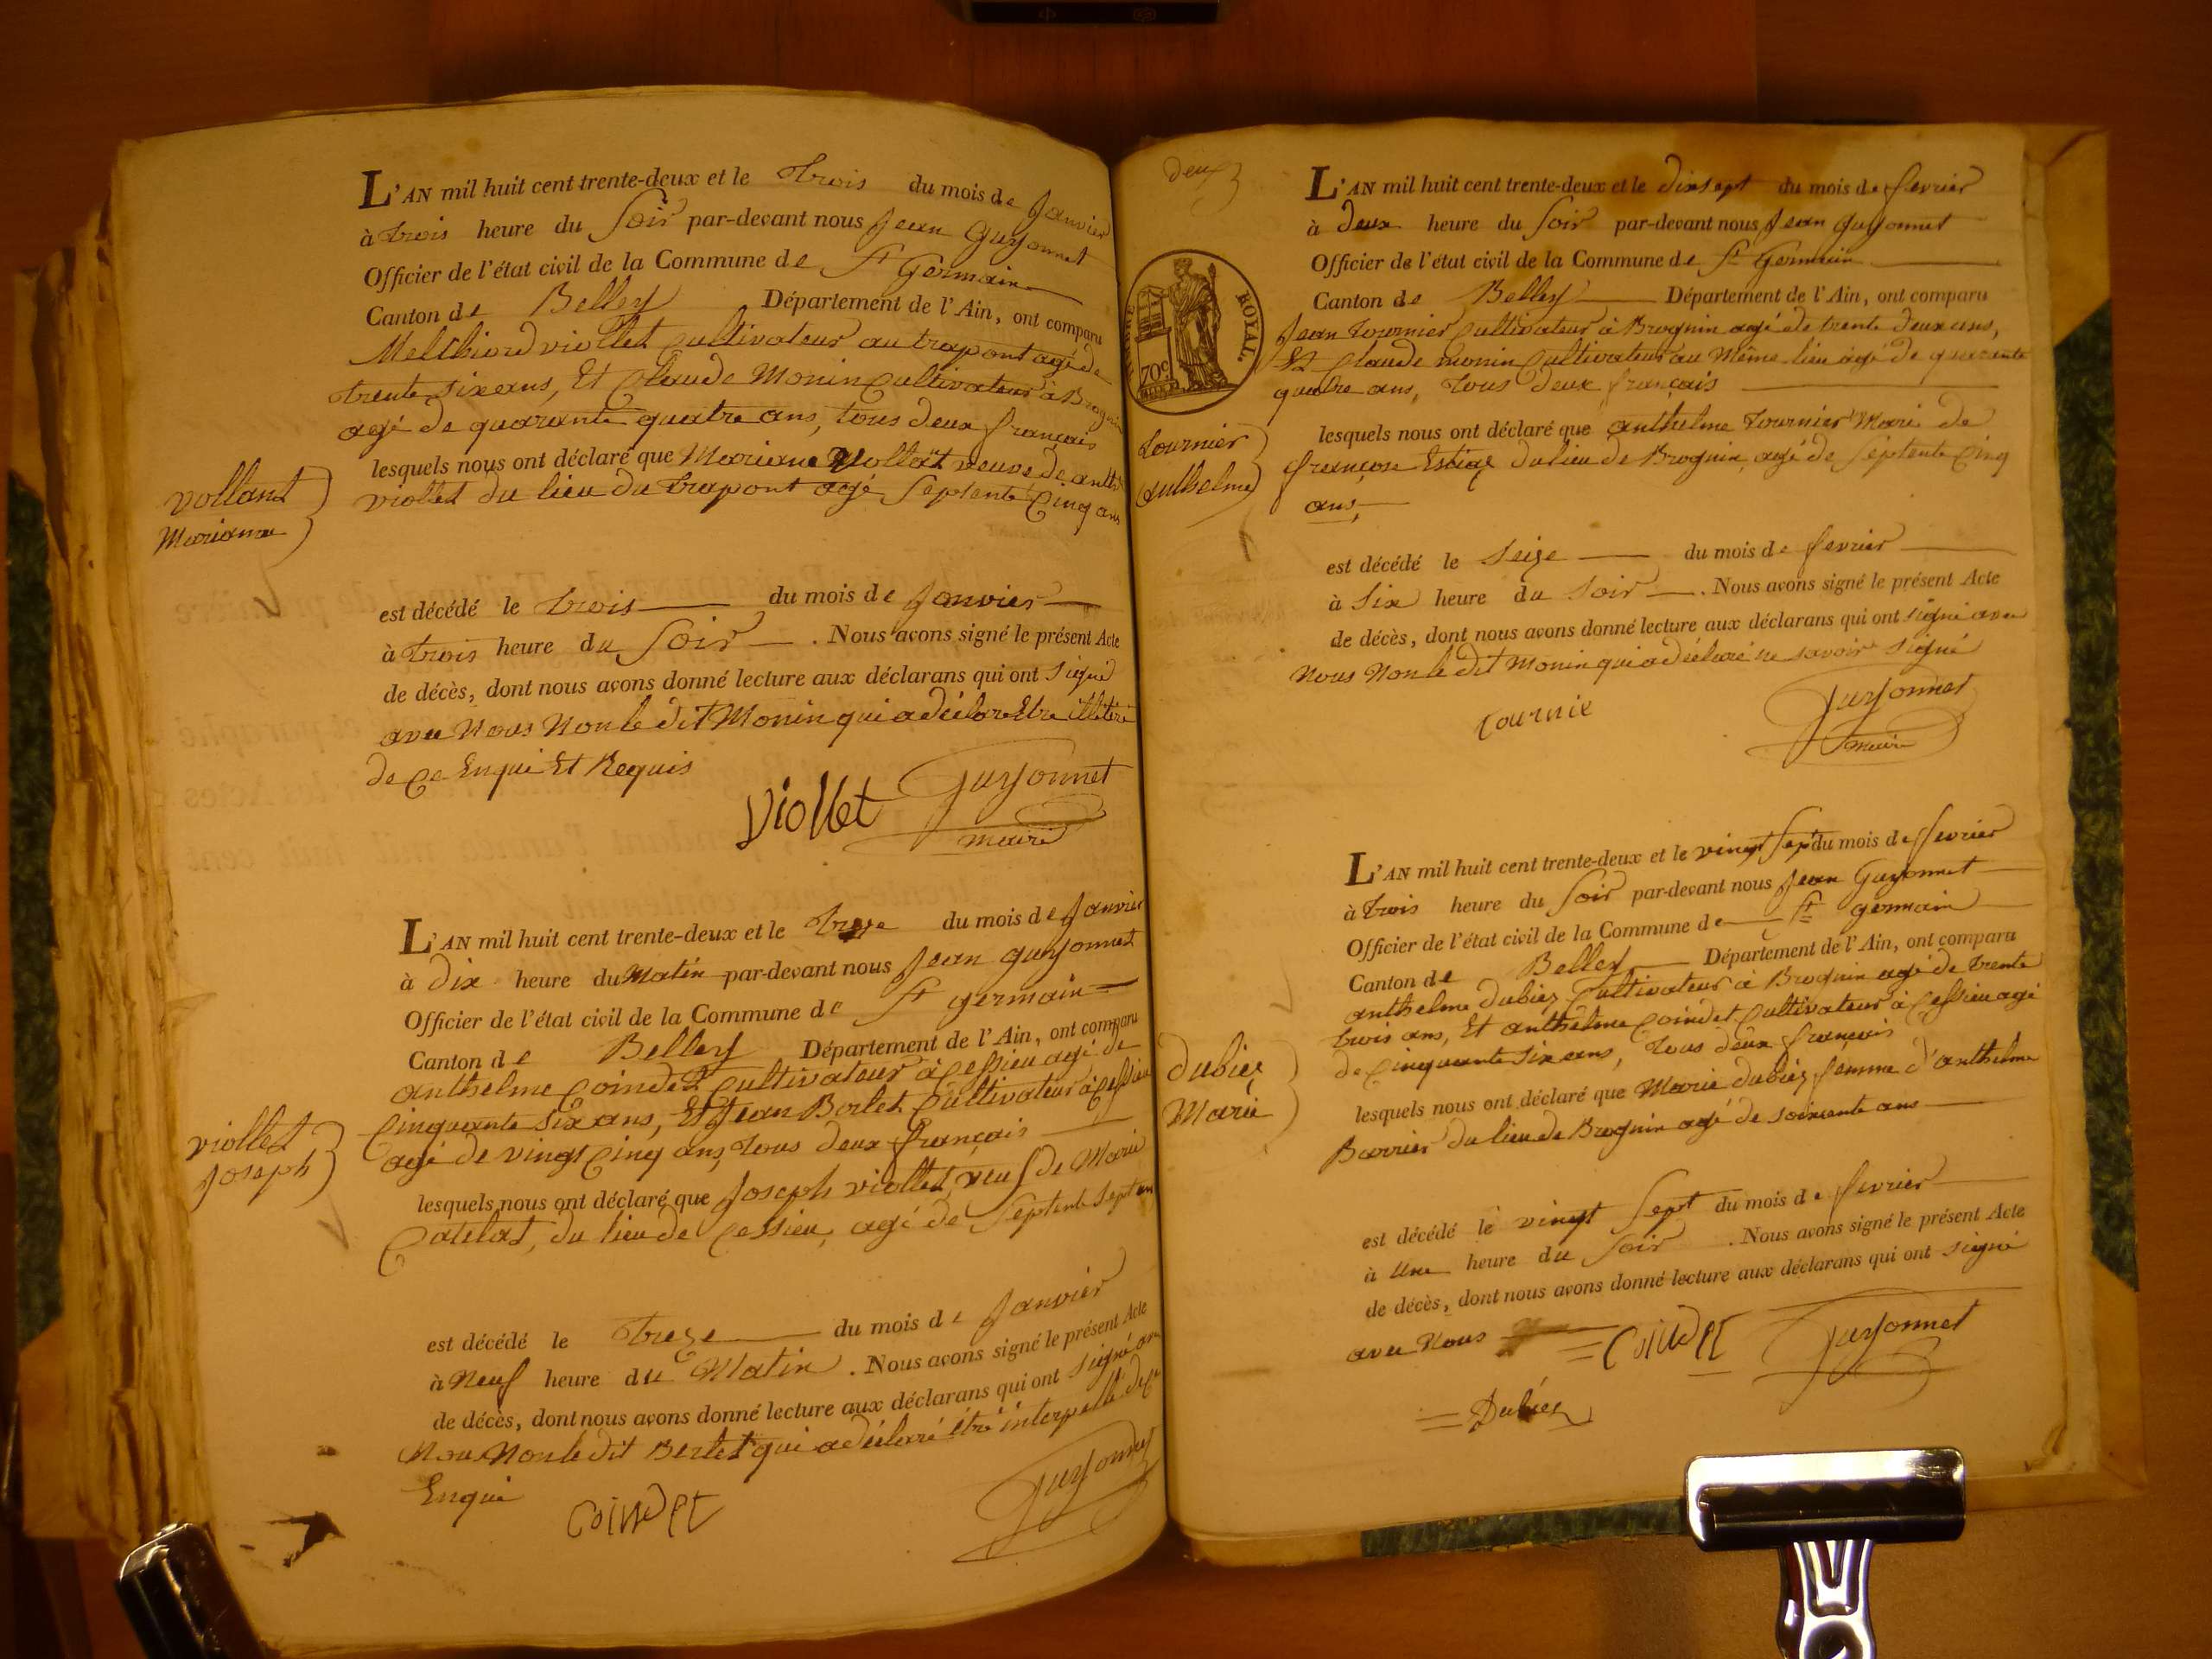 L'AN mil huit cent trente-deux et le trois du mois de Janvier
à trois heure du Soir par-devant nous Jean Guyonnet
Officier de l'état civil de la Commune de St Germain
Canton de Belley Département de l'Ain, ont comparu
Melchiord viollet Cultivateur au trapont agé de
trente six ans, Et Claude Monin Cultivateur à Brognin
agé de quarante quatre ans, tous deux français
lesquels nous ont déclaré que Mariane Vollat veuve de anth
viollet du lieu du trapont agé Septente Cinq ans
vollant
Marianne
est décédé le trois du mois de Janvier
à trois heure du Soir . Nous avons signé le présent Acte
de décès, dont nous avons donné lecture aux déclarans qui ont signé
avec Nous Non le dit Monin qui a déclaré Etre illétiré
de Ce Enqui Et Requis
Viollet Guyonnet
maire
L'AN mil huit cent trente-deux et le treze du mois de Janvier
à dix heure du Matin par-devant nous Jean guyonnet
Officier de l'état civil de la Commune de St germain
Canton de Belley Département de l'Ain, ont comparu
anthelme Coindet Cultivateur à Cessieu agé de
Cinquante Six ans, Et Jean Berlet Cultivateur à Cessieu
agé de vingt Cinq ans, tous deux français
lesquels nous ont déclaré que Joseph viollet, veuf de Marie
Catelat, du lieu de Cessieu, agé de Septente Sept ans
viollet
Joseph
est décédé le treze du mois de Janvier
à Neuf heure du Matin . Nous avons signé le présent Acte
de décès, dont nous avons donné lecture aux déclarans qui ont signé avec
Nous Non le dit Berlet qui a déclaré être interpellé de Ce
Enqui
Coindet Guyonnet
deux
TIMBRE ROYAL.
70c
L'AN mil huit cent trente-deux et le dixsept du mois de fevrier
à deux heure du Soir par-devant nous Jean guyonnet
Officier de l'état civil de la Commune de St Germain
Canton de Belley Département de l'Ain, ont comparu
Jean tournier Cultivateur à Brognin agé de trente deux ans,
Et Claude monin Cultivateur au Même lieu agé de quarante
quatre ans, tous deux français
lesquels nous ont déclaré que anthelme tournier Mari de
françose du lieu de Brognin, agé de Septente Cinq
ans,
tournier
anthelme
est décédé le Seize du mois de fevrier
à Six heure du Soir . Nous avons signé le présent Acte
de décès, dont nous avons donné lecture aux déclarans qui ont signé avec
Nous Non le dit Monin qui a déclaré ne savoir signé
tournie Guyonnet
maire
L'AN mil huit cent trente-deux et le vingt Sept du mois de fevrier
à trois heure du Soir par-devant nous Jean Guyonnet
Officier de l'état civil de la Commune de St germain
Canton de Belley Département de l'Ain, ont comparu
anthelme dubiez Cultivateur à Brognin agé de trente
trois ans, Et anthelme Coindet Cultivateur à Cessieu agé
de Cinquante Six ans, tous deux français
lesquels nous ont déclaré que Marie dubiez femme d'anthelme
Barrier du lieu de Brognin agé de soixante ans
dubiez
Marie
est décédé le vingt Sept du mois de fevrier
à une heure du Soir . Nous avons signé le présent Acte
de décès, dont nous avons donné lecture aux déclarans qui ont signé
avec Nous Coindet Guyonnet
Dubiez